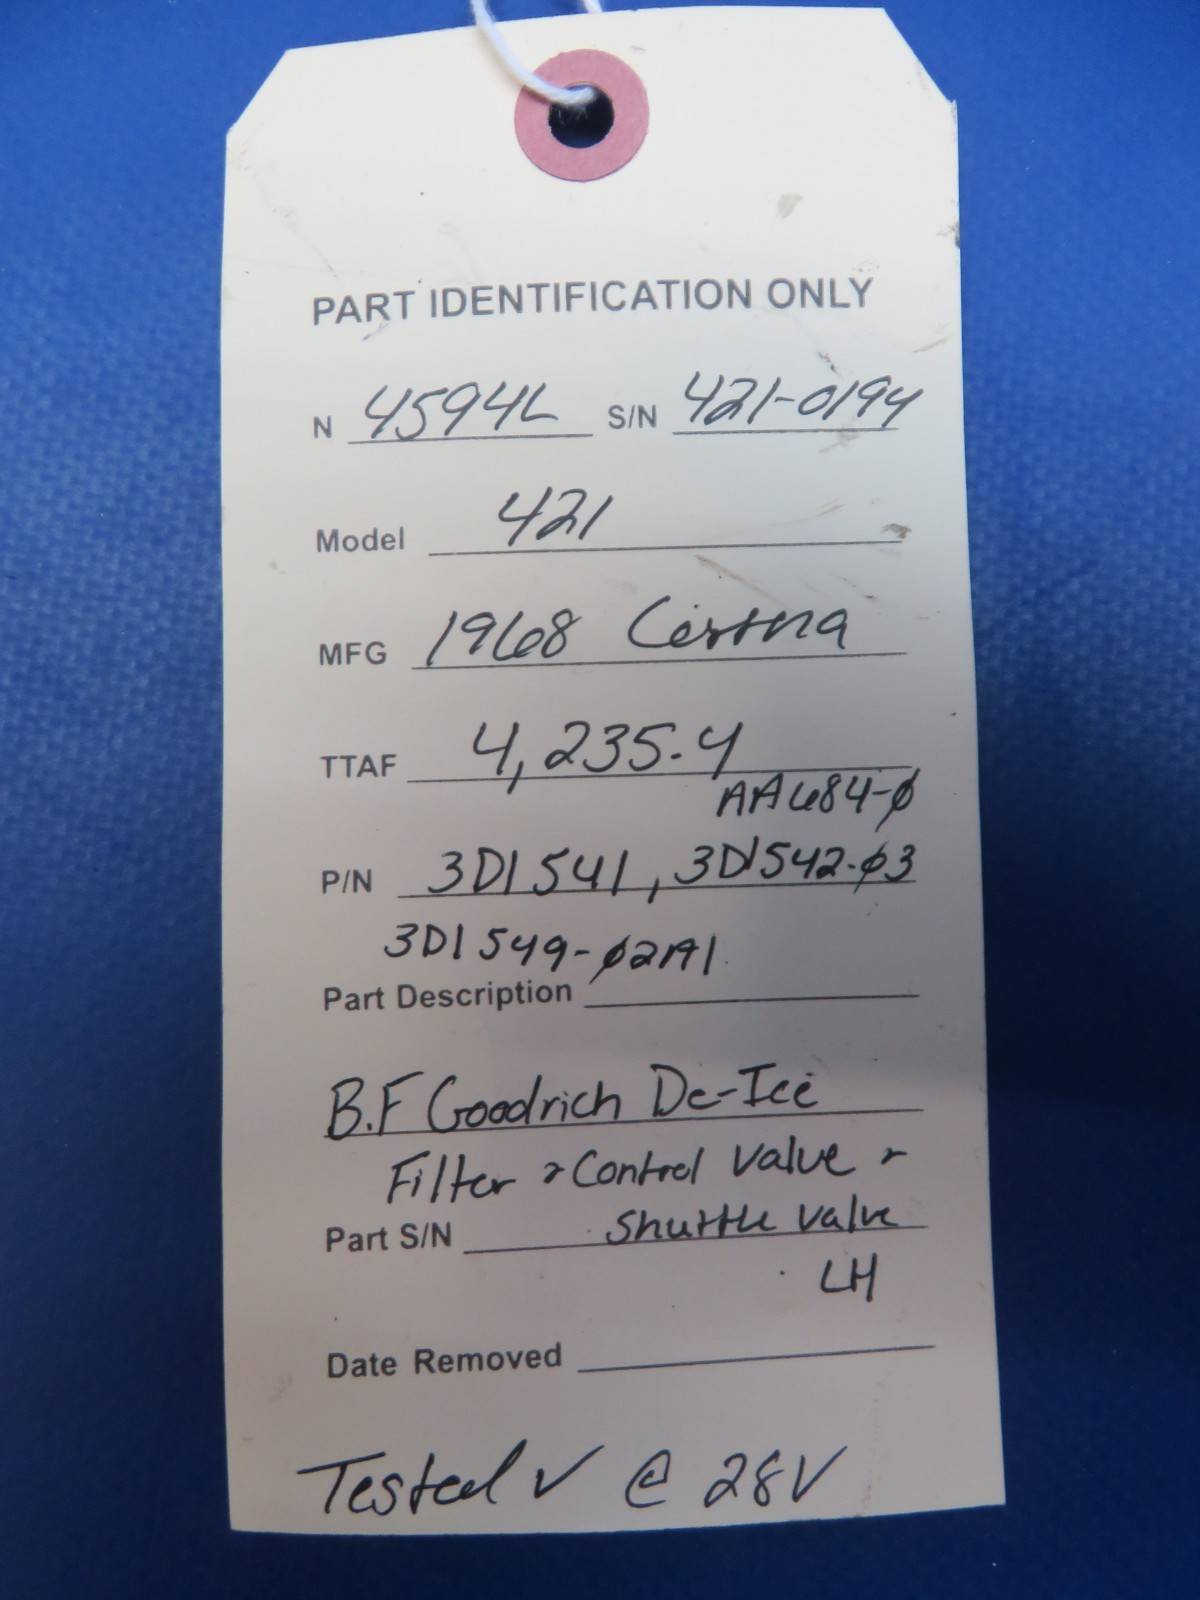 PART IDENTIFICATION ONLY
N 4594L S/N 421-0194
Model 421
MFG 1968 Cessna
TTAF 4,235.4
AA684-Ø
P/N 3D1541, 3D1542-Ø3
3D1549-Ø2A1
Part Description
B.F Goodrich De-Ice
Filter & Control Valve &
Part S/N Shuttle Valve
LH
Date Removed
Tested ✓ @ 28V